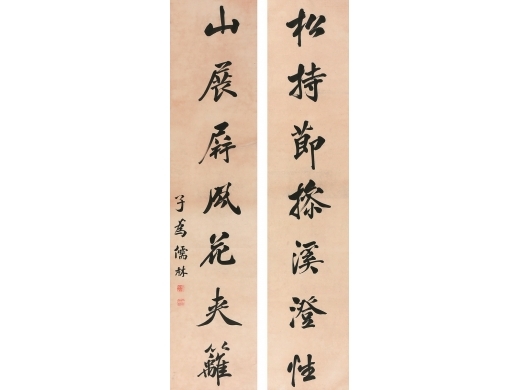 松持節操溪澄性
山展屏風花夾籬
子儒林